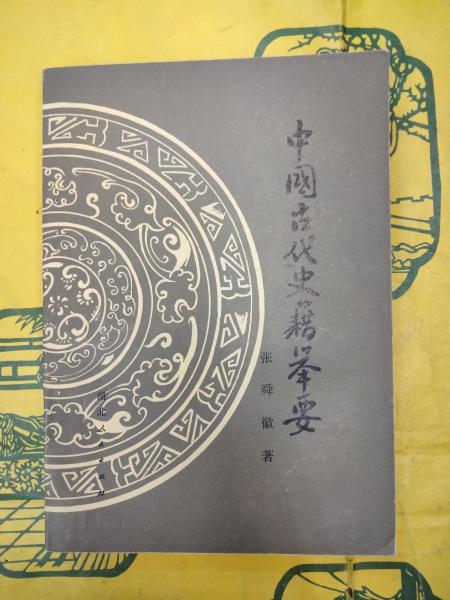 中國古代史籍举要
张舜徽著
湖北人民出版社